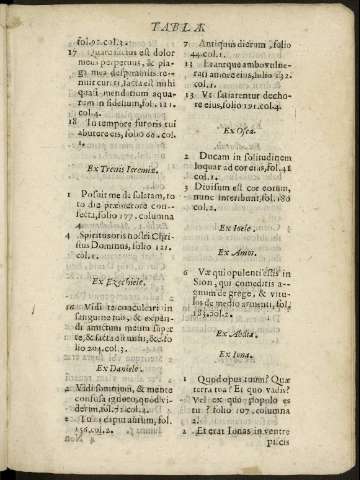 TABLÆ
fol.92.col.3.
17 Quare factus est dolor
meus perpetuus, & pla-
ga mea desperabilis re-
nuit curari, facta est mihi
quasi mendatium aqua-
rum in fidelium, fol. 121.
col.4.
18 In tempore furoris tui
abutere eis, folio 68. col.
1.
Ex Trenis Ieremiæ.
1 Posuit me desolatam, to-
ta die mærore con-
fecta, folio 177. columna
4
4 Spiritus oris nostri Chri-
stus Dominus, folio 121.
col.1.
Ex Ezechiele.
16 Vidi te conculcari in
sanguine tuo, & expan-
di amictum meum super
te, & facta es mihi, &c. fo
lio 204. col.3.
Ex Daniele.
2 Vidi somnium, & mente
confusa ignoro quod vi-
derim, fol.71. col.2.
2 Tu es caput aurum, fol.
156. col.2.
4 Non
7 Antiquus dierum, folio
44. col.1.
13 Erantque ambo vulne-
rati amore eius, folio 132.
col.1.
13 Vt satiarentur decho-
re eius, folio 191. col.4.
Ex Osea.
2 Ducam in solitudinem
loquar ad cor eius, fol.41
col.1.
3 Diuisum est cor eorum,
nunc interibunt, fol.180
col.2.
Ex Ioele.
Ex Amos.
6 Væ qui opulenti estis in
Sion, qui comeditis a-
gnum de grege, & vitu-
los de medio armenti, fol.
183. col.2.
Ex Abdia.
Ex Iona.
1 Quod opus tuum? Quæ
terra tua? Et quo vadis?
Vel ex quo populo es
tu? folio 107. columna
2.
2 Et erat Ionas in ventre
piscis